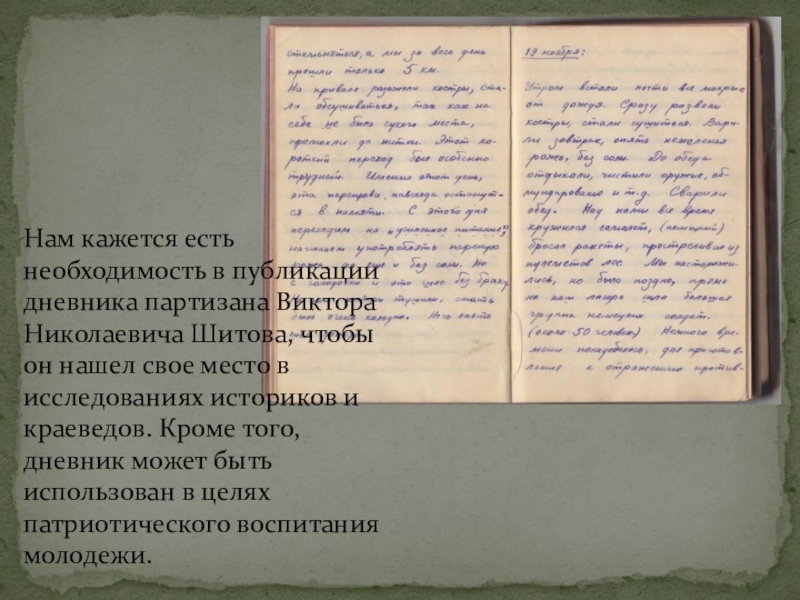 стельняться, а мы за весь день
прошли только 5 км.
На привале разожгли костры, ста-
ли обсушиваться, так как на
себе не было сухого места,
промокли до нитки. Этот ко-
роткий переход был особенно
трудный. Именно этот день,
эта переправа, навсегда останут-
ся в памяти. С этого дня
переходим на „усиленное питание"
начинаем употреблять пареную
и без соли. Но
с голодовки и это шло без браку
тушили, спать
было очень холодно. Ночь опять
19 ноября:
Утром встали почти все мокрые
от дождя. Сразу развели
костры, стали сушиться. Вари-
ли завтрак, опять немолотая
рожь, без соли. До обеда
отдыхали, чистили оружие, об-
мундирование и т.д. Сварили
обед. Над нами все время
кружился самолет, (немецкий)
бросал ракеты, простреливал из
пулеметов лес. Мы насторожи-
лись, но было поздно, прямо
на наш лагерь шла большая
группа немецких солдат.
(около 50 человек) Немного вре-
мени понадобилось, для приготов-
ления к отражению против-
Нам кажется есть
необходимость в публикации
дневника партизана Виктора
Николаевича Шитова, чтобы
он нашел свое место в
исследованиях историков и
краеведов. Кроме того,
дневник может быть
использован в целях
патриотического воспитания
молодежи.